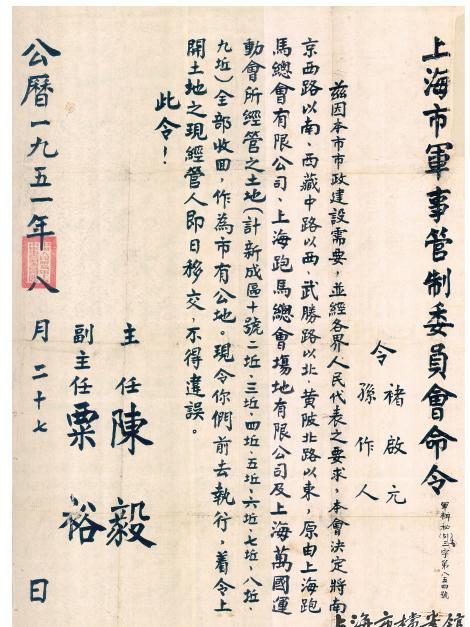 上海市軍事管制委員會命令
令 褚啟元
孫作人
茲因本市市政建設需要，並經各界人民代表之要求，本會決定將南
京西路以南、西藏中路以西、武勝路以北、黃陂北路以東，原由上海跑
馬總會有限公司、上海跑馬總會場地有限公司及上海萬國運
動會所經管之土地（計新成區十號二坵、三坵、四坵、五坵、六坵、七坵、八坵、
九坵）全部收回，作為市有公地。現令你們前去執行，着令上
開土地之現經管人即日移交，不得違誤。
此令！
主任 陳毅
副主任 粟裕
公曆一九五一年八月二十七日
上海市檔案館